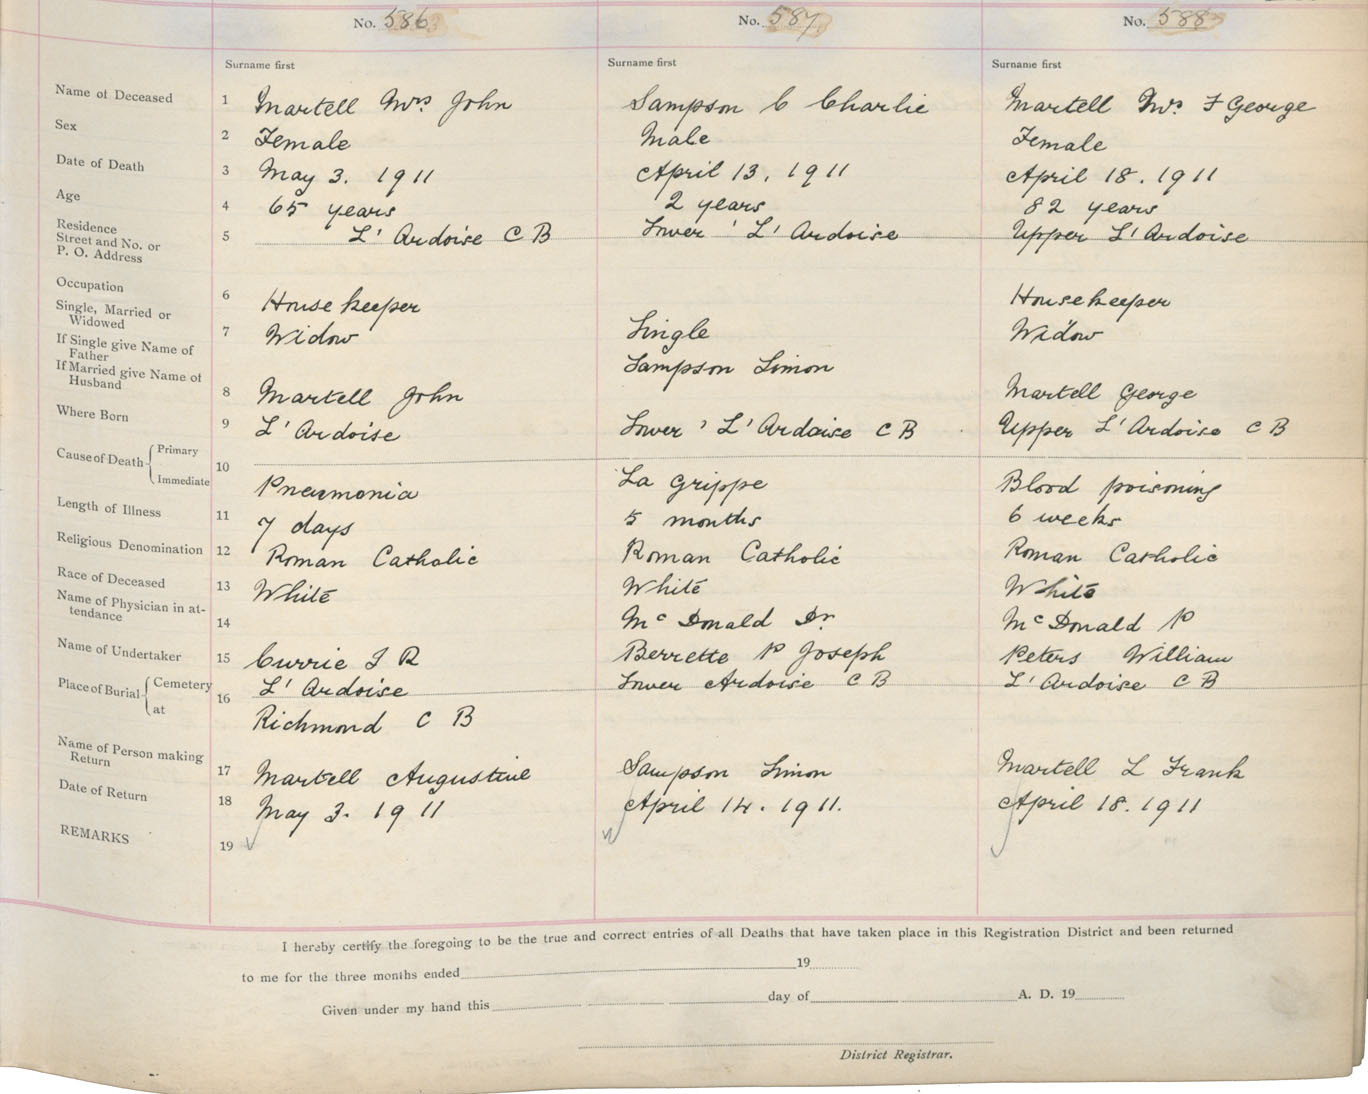 No. 586
No. 587
No. 588
Surname first
Surname first
Surname first
Name of Deceased 1 Martell Mrs John Sampson C Charlie Martell Mrs F George
Sex 2 Female Male Female
Date of Death 3 May 3. 1911 April 13, 1911 April 18. 1911
Age 4 65 years 2 years 82 years
Residence
Street and No. or
P. O. Address 5 L' Ardoise C B Lower ' L' Ardoise Upper L' Ardoise
Occupation 6 House keeper Housekeeper
Single, Married or
Widowed 7 Widow Single Widow
If Single give Name of
Father Sampson Simon
If Married give Name of
Husband 8 Martell John Martell George
Where Born 9 L' Ardoise Lower ' L' Ardoise C B Upper L' Ardoise C B
Cause of Death { Primary
Immediate 10 Pneumonia La Grippe Blood poisoning
Length of Illness 11 7 days 5 months 6 weeks
Religious Denomination 12 Roman Catholic Roman Catholic Roman Catholic
Race of Deceased 13 White White White
Name of Physician in at-
tendance 14 McDonald Dr. McDonald P
Name of Undertaker 15 Currie J R Berrette P Joseph Peters William
Place of Burial { Cemetery L' Ardoise Lower Ardoise C B L' Ardoise C B
at 16 Richmond C B
Name of Person making
Return 17 Martell Augustine Sampson Simon Martell L Frank
Date of Return 18 May 3. 1911 April 14. 1911. April 18. 1911
REMARKS 19
I hereby certify the foregoing to be the true and correct entries of all Deaths that have taken place in this Registration District and been returned
to me for the three months ended 19
Given under my hand this day of A. D. 19
District Registrar.